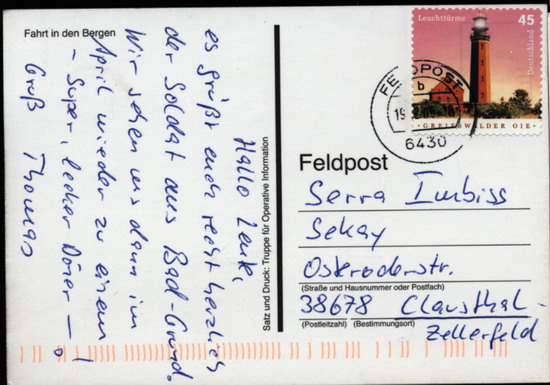 Fahrt in den Bergen
Hallo Leute,
es grüßt euch recht herzlich
der Soldat aus Bad-Grund.
Wir sehen uns dann im
April wieder zu einem
- Super, lecker Döner - !
Gruß Thomas
Satz und Druck: Truppe für Operative Information
Leuchttürme
45
Deutschland
GREIFSWALDER OIE
FELDPOST
b
6430
Feldpost
Serra Imbiss
Sekay
Osteroderstr.
(Straße und Hausnummer oder Postfach)
38678 Clausthal-
(Postleitzahl) (Bestimmungsort)
Zellerfeld